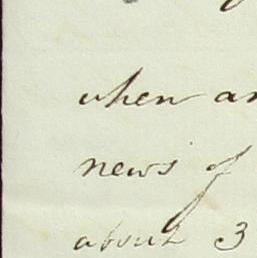 when an
news of
about 3